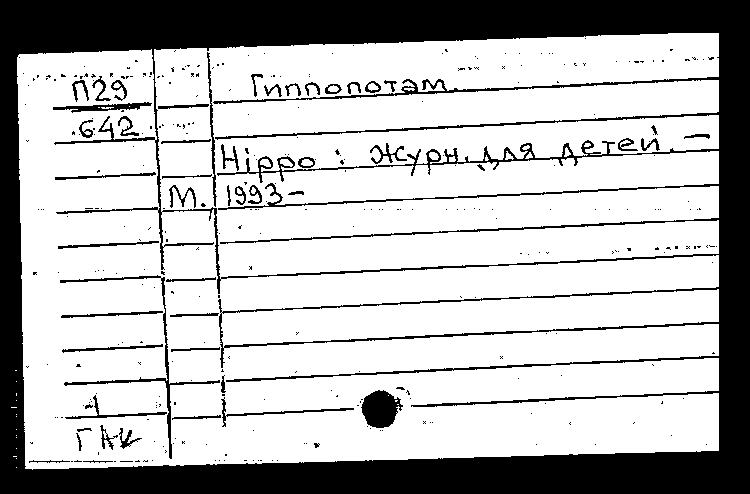 П29 Гиппопотам.
642
Hippo : Журн. для детей. —
М. 1993 –
1
ГАК